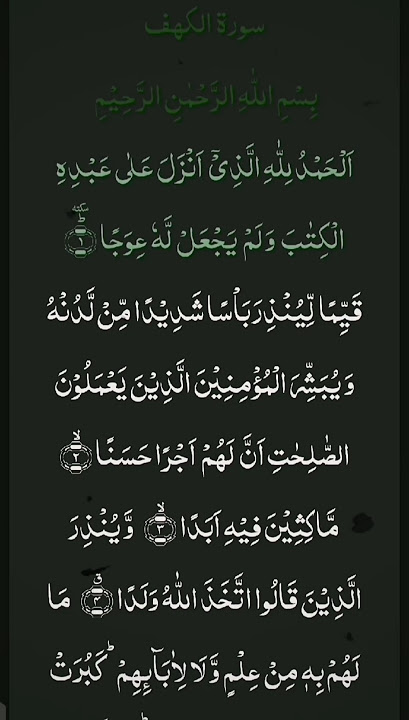 سورة الكهف
بِسْمِ اللهِ الرَّحْمٰنِ الرَّحِيْمِ
اَلْحَمْدُ لِلّٰهِ الَّذِيْٓ اَنْزَلَ عَلٰى عَبْدِهِ
الْكِتٰبَ وَلَمْ يَجْعَلْ لَّهٗ عِوَجًا ؕ سكتة ۝۱
قَيِّمًا لِّيُنْذِرَ بَاْسًا شَدِيْدًا مِّنْ لَّدُنْهُ
وَيُبَشِّرَ الْمُؤْمِنِيْنَ الَّذِيْنَ يَعْمَلُوْنَ
الصّٰلِحٰتِ اَنَّ لَهُمْ اَجْرًا حَسَنًا ۙ۝۲
مَّاكِثِيْنَ فِيْهِ اَبَدًا ۙ۝۳ وَّيُنْذِرَ
الَّذِيْنَ قَالُوا اتَّخَذَ اللّٰهُ وَلَدًا ۗ۝۴ مَا
لَهُمْ بِهٖ مِنْ عِلْمٍ وَّلَا لِاٰبَآئِهِمْ ؕ كَبُرَتْ